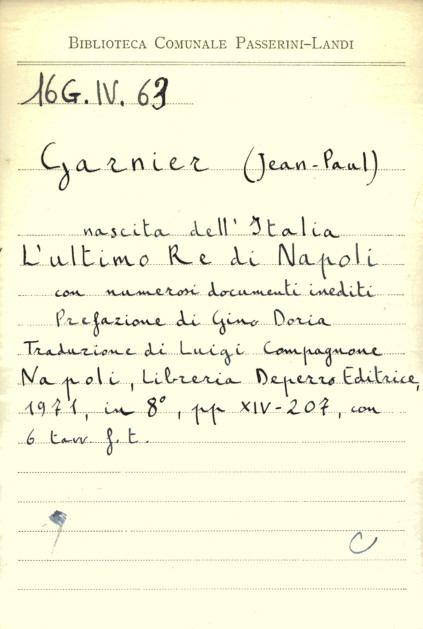 BIBLIOTECA COMUNALE PASSERINI-LANDI
16G.IV.63
Garnier (Jean-Paul)
nascita dell'Italia
L'ultimo Re di Napoli
con numerosi documenti inediti
Prefazione di Gino Doria
Traduzione di Luigi Compagnone
Napoli, Libreria Deperro Editrice,
1971, in 8°, pp XIV-207, con
6 tavv f.t.
C